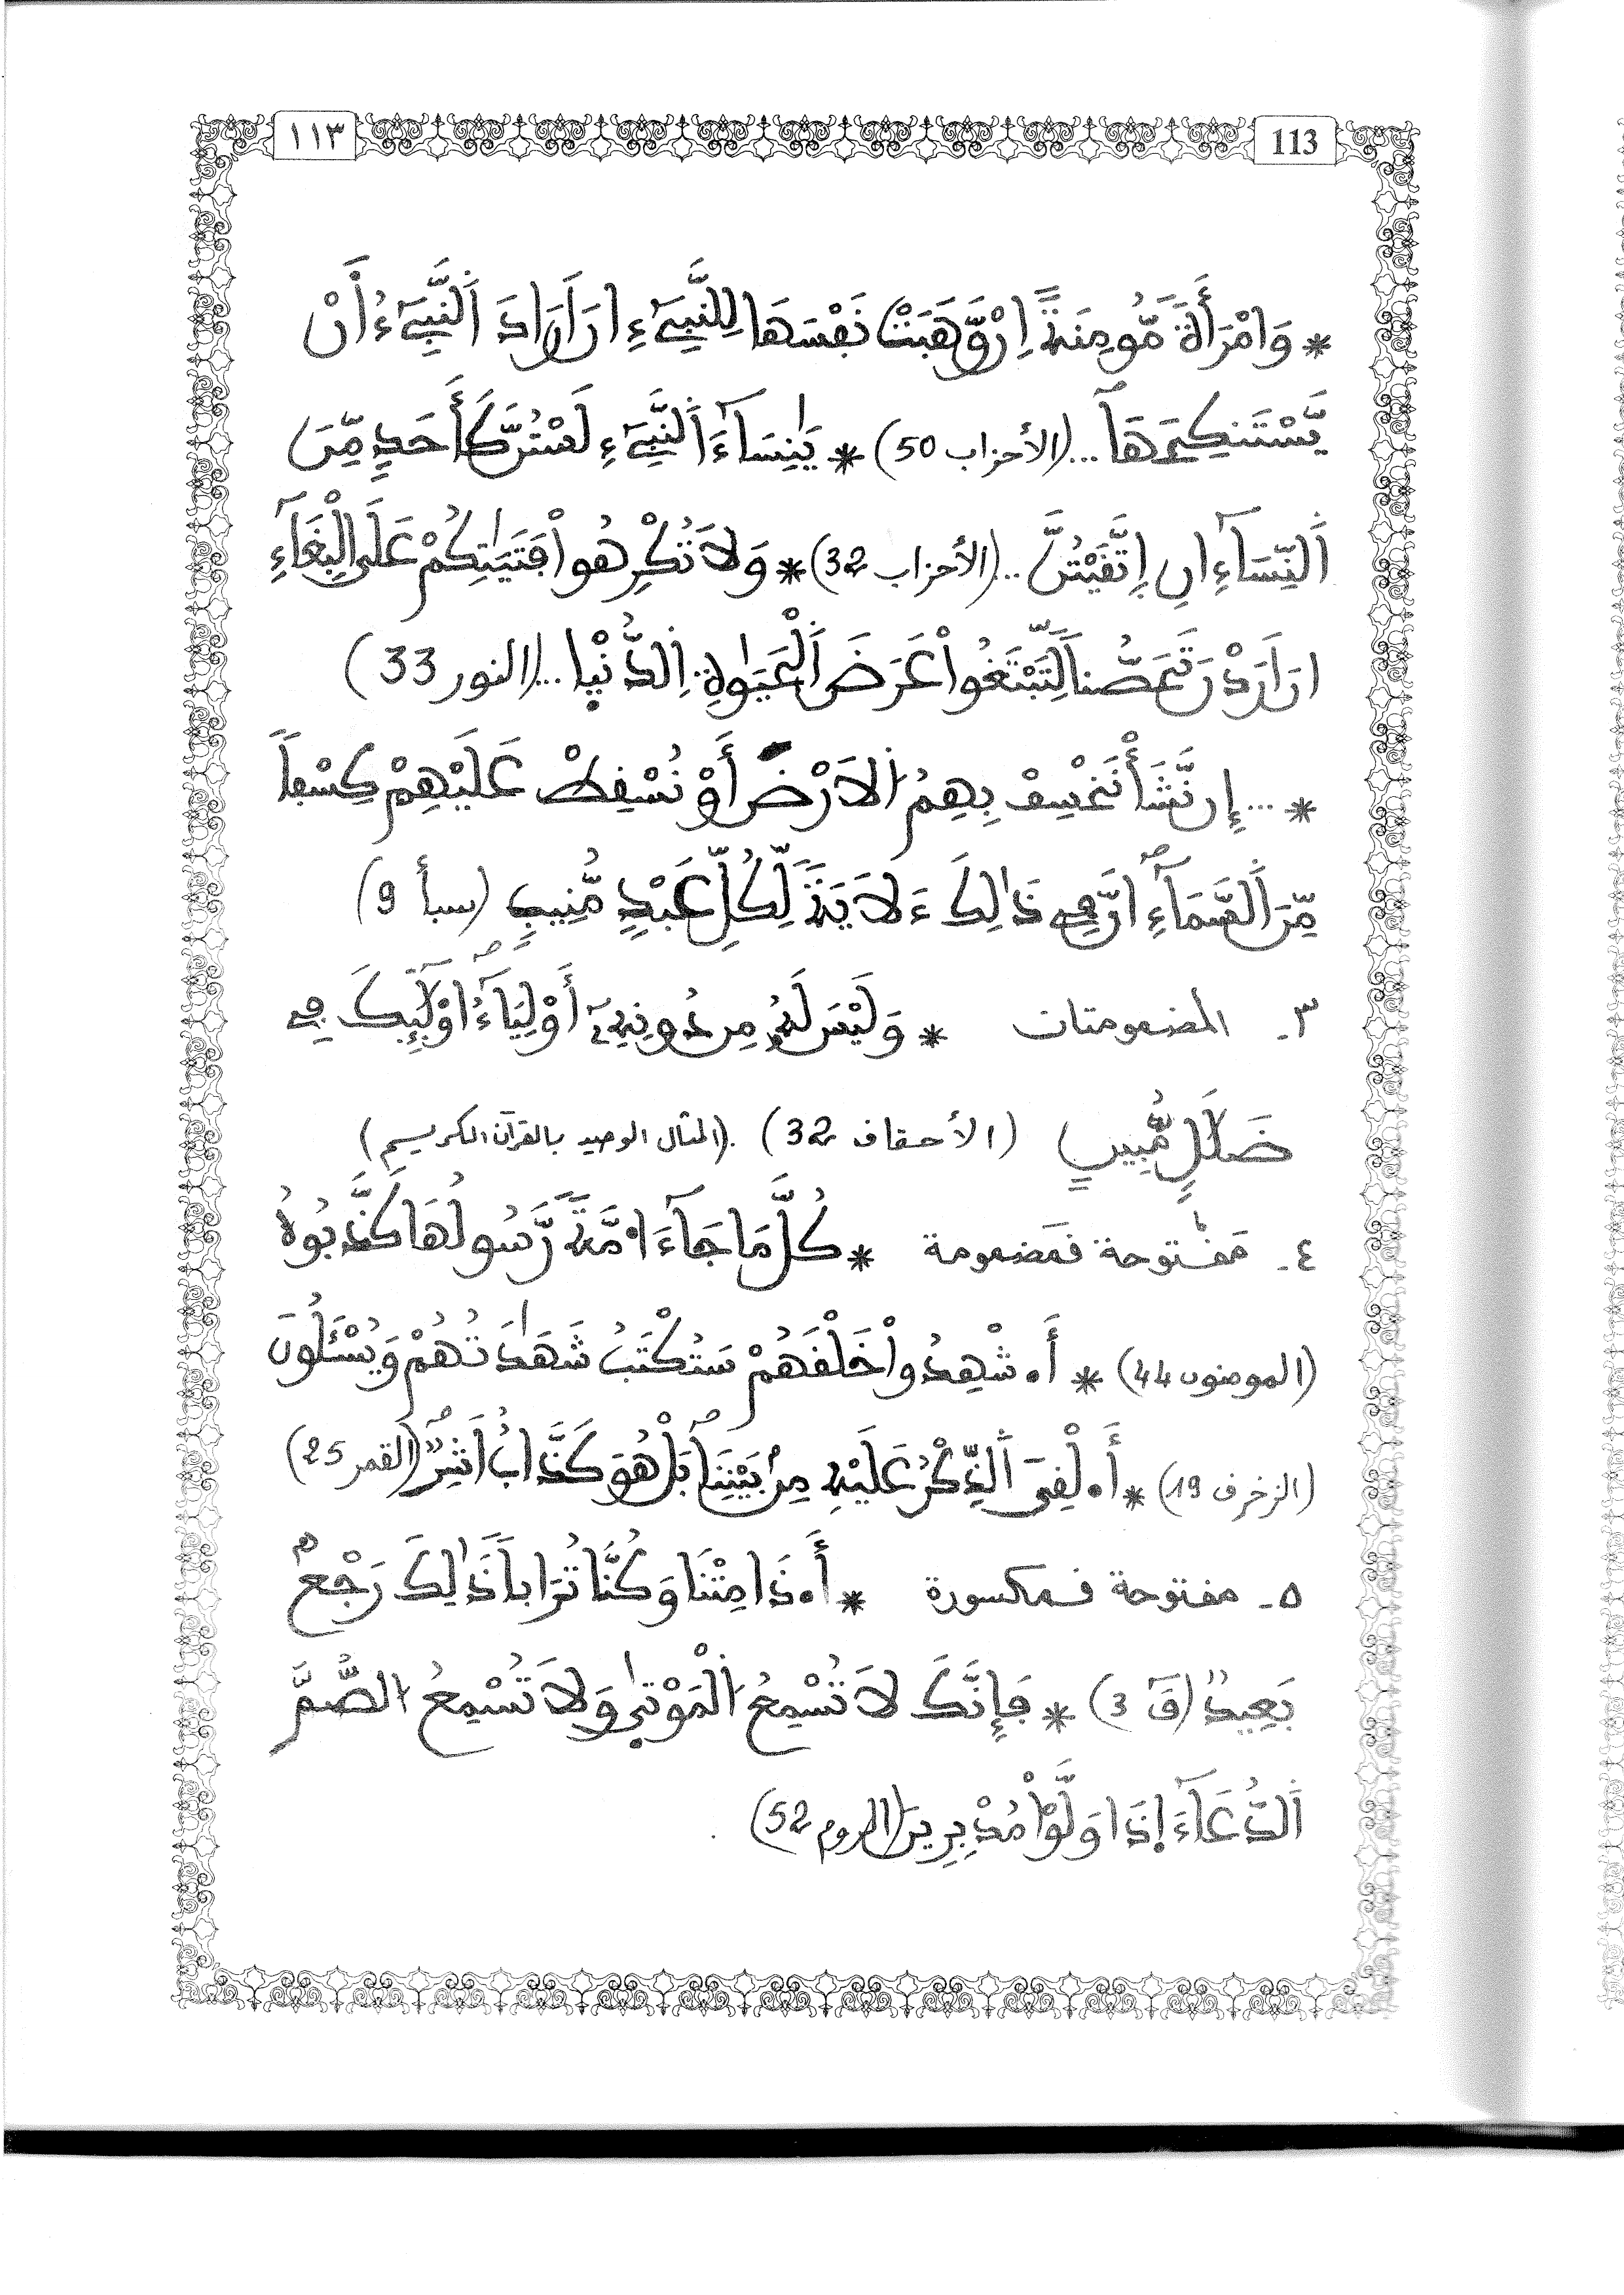 ١١٣
113
* وَامْرَأَةً مُّومِنَةً اِنْ وَّهَبَتْ نَفْسَهَا لِلنَّبِيءِ انَ اَرَادَ اَلنَّبِيءُ أَنْ
يَّسْتَنكِحَهَا ... (الأحزاب 50) * يَٰنِسَآءَ اَلنَّبِيءِ لَسْتُنَّ كَأَحَدٍ مِّنَ
اَلنِّسَآءِ انِ إِتَّقَيْتُنَّ ... (الأحزاب 32) * وَلَا تُكْرِهُواْ فَتَيَٰتِكُمْ عَلَى اَلْبِغَآءِ
انَ اَرَدْنَ تَحَصُّناً لِّتَبْتَغُواْ عَرَضَ اَلْحَيَوٰةِ اِلدُّنْيٜا ... (النور 33)
* ... إِن نَّشَأْ نَخْسِفْ بِهِمُ اُلَارْضَ أَوْ نُسْقِطْ عَلَيْهِمْ كِسْفاً
مِّنَ اَلسَّمَآءِ انَّ فِے ذَٰلِكَ ءَلَايَةً لِّكُلِّ عَبْدٍ مُّنِيبٍ (سبأ 9)
٣- المضمومتان * وَلَيْسَ لَهُۥ مِن دُونِهِۦٓ أَوْلِيَآءُ اوْلَٰٓئِكَ فِے
ضَلَٰلٍ مُّبِينٍ (الأحقاف 32) . (المثال الوحيد بالقرآن الكريم)
٤- مفتوحة فمضمومة * كُلَّ مَا جَآءَ امَّةً رَّسُولُهَا كَذَّبُوهُ
(المومنون 44) * أَ۟شْهِدُواْ خَلْقَهُمْ سَتُكْتَبُ شَهَٰدَتُهُمْ وَيُسْـَٔلُونَ
(الزخرف 19) * أَ۟لْقِيَ اَلذِّكْرُ عَلَيْهِ مِنۢ بَيْنِنَا بَلْ هُوَ كَذَّابٌ اَشِرٌ (القمر 25)
٥- مفتوحة فمكسورة * أَ۟ذَا مِتْنَا وَكُنَّا تُرَاباً ذَٰلِكَ رَجْعٌ
بَعِيدٌ (قٓ 3) * فَإِنَّكَ لَا تُسْمِعُ اُلْمَوْتٜيٰ وَلَا تُسْمِعُ اُلصُّمَّ
اَلدُّعَآءَ إِذَا وَلَّوْاْ مُدْبِرِينَ (الروم 52) .